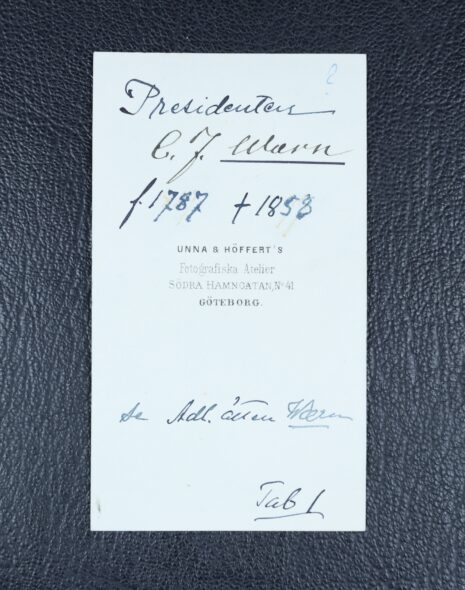 ?
Presidenten
C. J. Wærn
f. 1787 † 1858
UNNA & HÖFFERT'S
Fotografiska Atelier
SÖDRA HAMNGATAN, No 41
GÖTEBORG.
se Adl. ätten Wærn
Tab 1